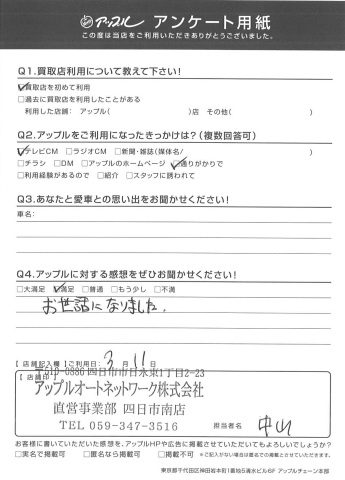 アップル アンケート用紙
この度は当店をご利用いただきありがとうございました。
Q1.買取店利用について教えて下さい!
☑買取店を初めて利用
□過去に買取店を利用したことがある
利用した店舗： アップル( )店 その他( )
Q2.アップルをご利用になったきっかけは?(複数回答可)
☑テレビCM □ラジオCM □新聞・雑誌(媒体名/ )
□チラシ □DM □アップルのホームページ ☑通りがかりで
□利用経験があるので □紹介 □スタッフに誘われて
Q3.あなたと愛車との思い出をお聞かせください!
車名：
Q4.アップルに対する感想をぜひお聞かせください!
□大満足 ☑満足 □普通 □もう少し □不満
お世話になりました。
【店舗記入欄】 ご利用日： 3 月 11 日
【店舗印】
〒510-0886 四日市市日永東1丁目2-23
アップルオートネットワーク株式会社
直営事業部 四日市南店
TEL 059-347-3516
担当者名 中山
お客様に書いていただいた感想を、アップルHPや広告に掲載させていただいてもよろしいでしょうか?
□実名で掲載可 □匿名なら掲載可 □掲載不可 ※ご記入がない場合は匿名での掲載とさせていただきます。
東京都千代田区神田岩本町1番地5清水ビル6F アップルチェーン本部